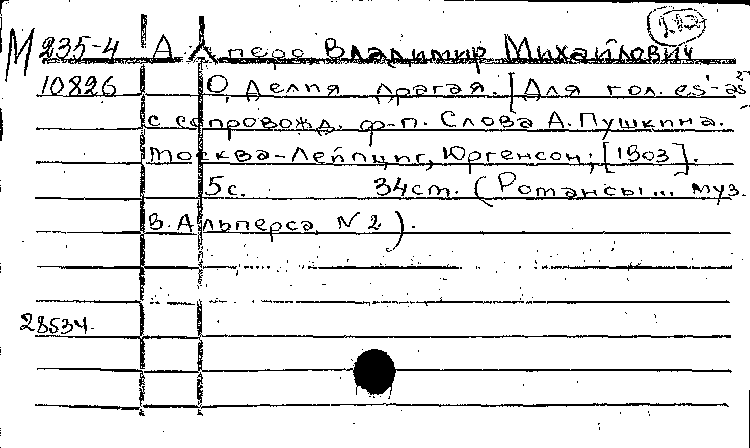 1.12
М 235-4 Альперс Владимир Михайлович
10826 О, Делия драгая. [Для гол. es¹-as²
с сопровожд. ф-п. Слова А. Пушкина.
Москва-Лейпциг, Юргенсон, [1903].
5с. 34см. (Романсы... муз.
В. Альперса, N 2).
28534.